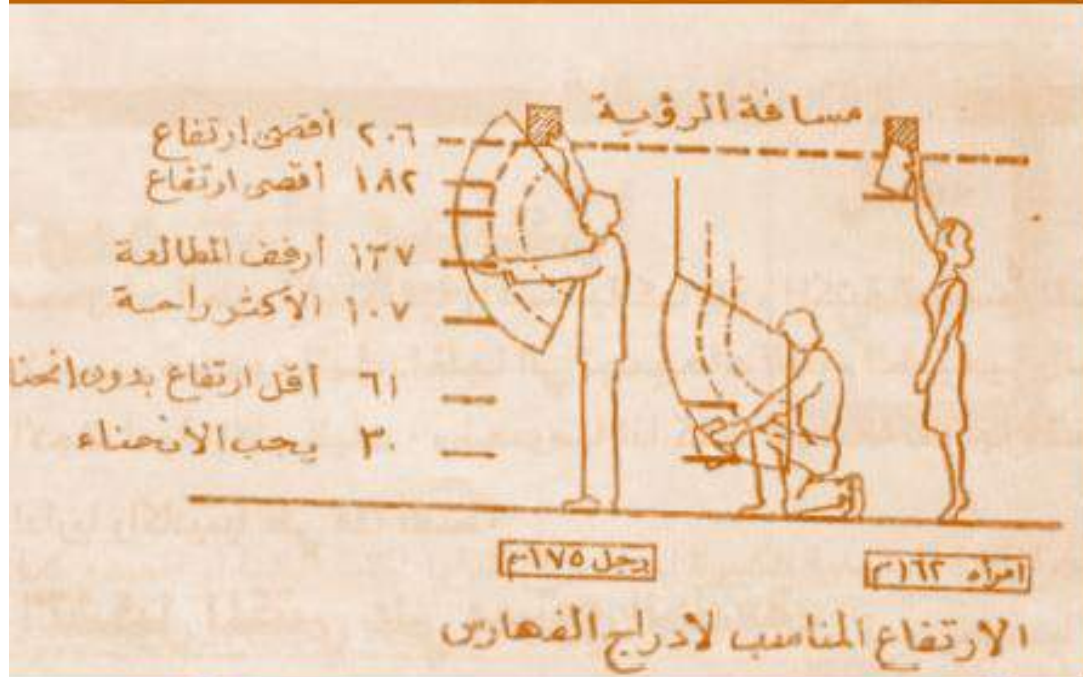 مسافة الرؤية
٢٠٦ أقصى ارتفاع
١٨٢ أقصى ارتفاع
١٣٧ أرفف المطالعة
١٠٧ الأكثر راحة
٦١ أقل ارتفاع بدون انحنا
٣٠ يجب الانحناء
رجل ١٧٥م
امرأه ١٦٢م
الارتفاع المناسب لادراج الفهارس